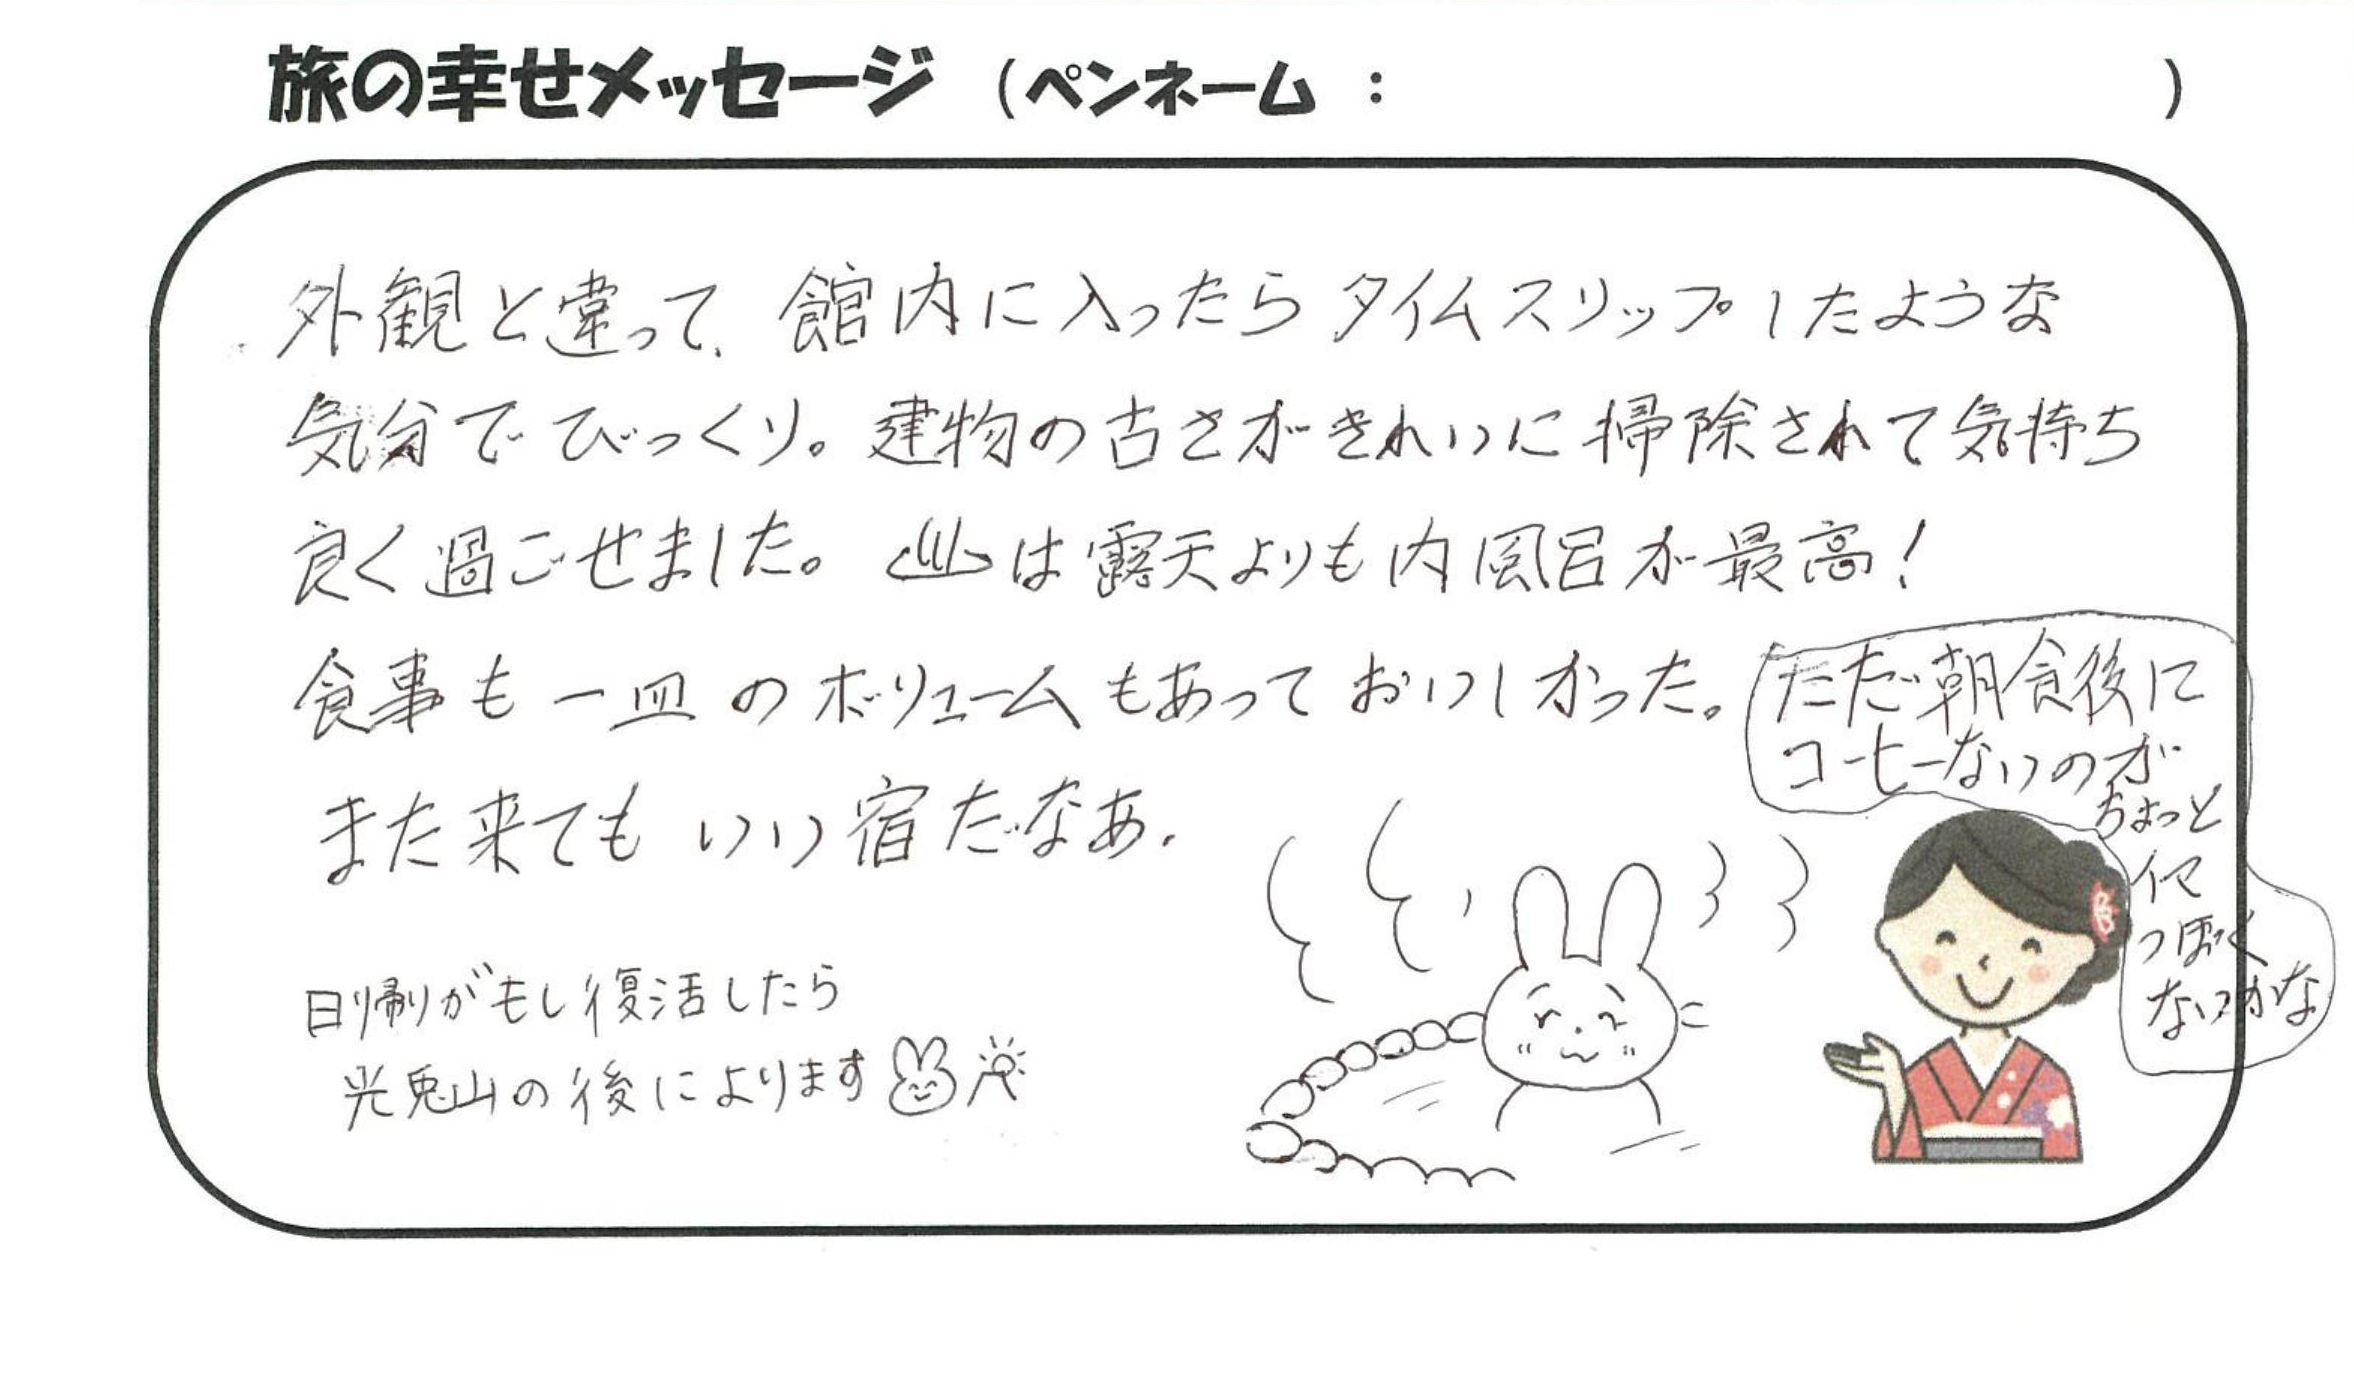 旅の幸せメッセージ (ペンネーム : )
外観と違って、館内に入ったらタイムスリップしたような
気分でびっくり。建物の古さがきれいに掃除されて気持ち
良く過ごせました。♨は露天よりも内風呂が最高!
食事も一皿のボリュームもあっておいしかった。
ただ朝食後に
コーヒーないのが
ちょっと
イマ
っぽく
ないかな
また来てもいい宿だなあ.
日帰りがもし復活したら
光兎山の後によります